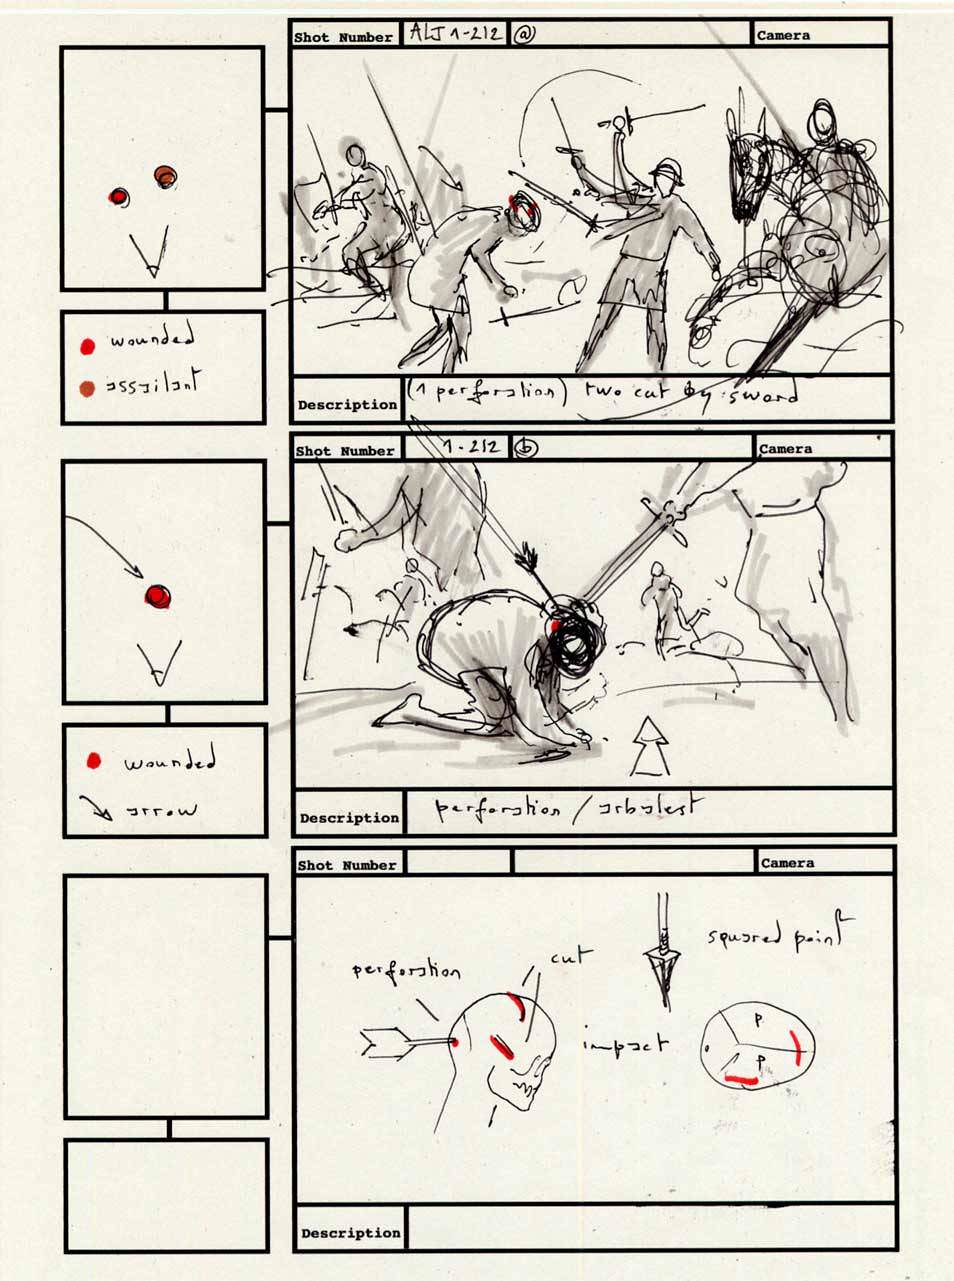 Shot Number ALJ 1-212 a Camera
wounded
assailant
Description (1 perforation) two cut by sword
Shot Number 1-212 b Camera
wounded
arrow
Description perforation / arbalest
Shot Number Camera
squared point
cut
perforation
impact
P
P
Description